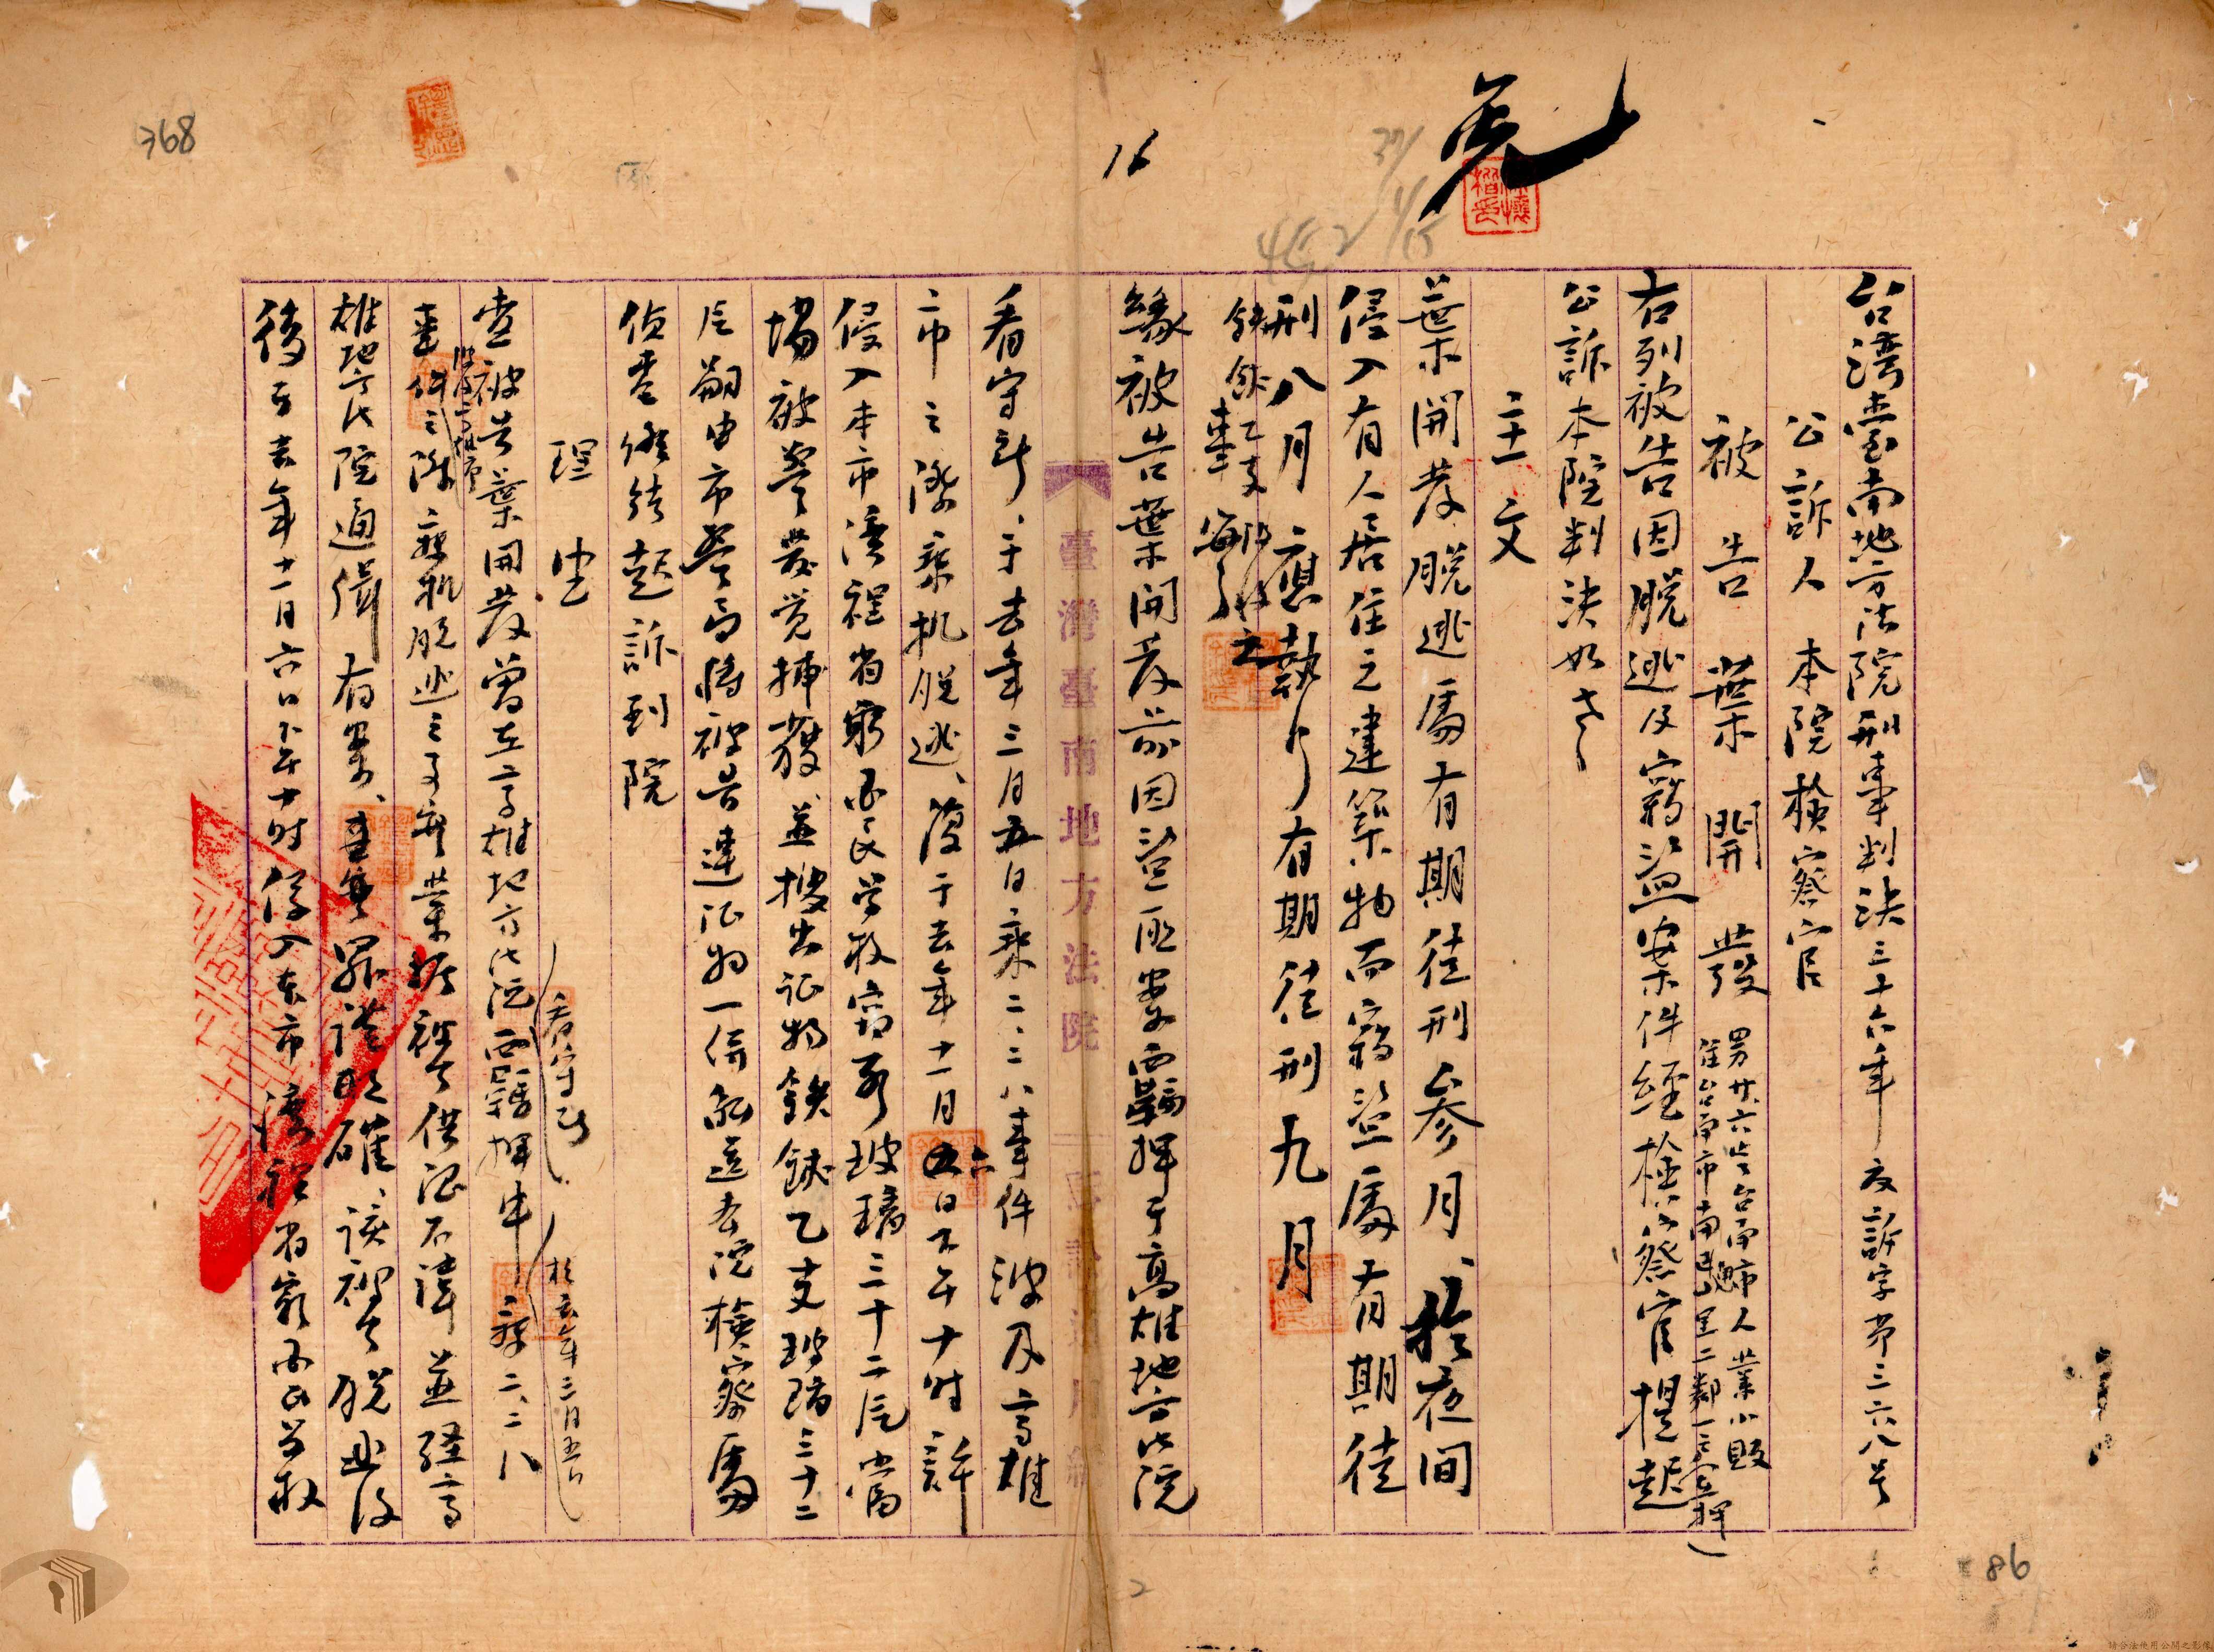 368
16
452
86
2
台湾台南地方法院刑事判決三十六年度訴字第三六八号
公訴人 本院檢察官
被告 葉開發 男廿六岁台南市人業小販
住台南市南
右列被告因脱逃及竊盜案件經檢察官提起
公訴本院判決如左
主文
葉開發脱逃處有期徒刑参月、於夜間
侵入有人居住之建築物而竊盜處有期徒
刑八月應執行有期徒刑九月
事實
緣被告葉開發前因盜匪案覊押于高雄地方法院
看守所、于去年三月五日乘二、二八事件波及高雄
市之際乘机脱逃、復于去年十一月六日下午十時許
侵入本市濱裡省躬国民学校窃取玻璃三十二片當
場被警發觉捕獲、並搜出证物鉄鋏乙支玻璃三十二
片嗣由市警局將被告連证物一併解送本院檢察處
偵查終結起訴到院
理由
查被告葉開發曾在高雄地方法院看守所覊押中於去年三月五日
二、二八
事件
之際乘机脱逃之事實業据被告供認不諱並經高
雄地方法院通緝有案、事實罪證明確、該被告脱逃後
復于去年十一月六日下午十時侵入本市濱裡省躬国民学校
臺灣臺南地方法院
請合法使用公開之影像